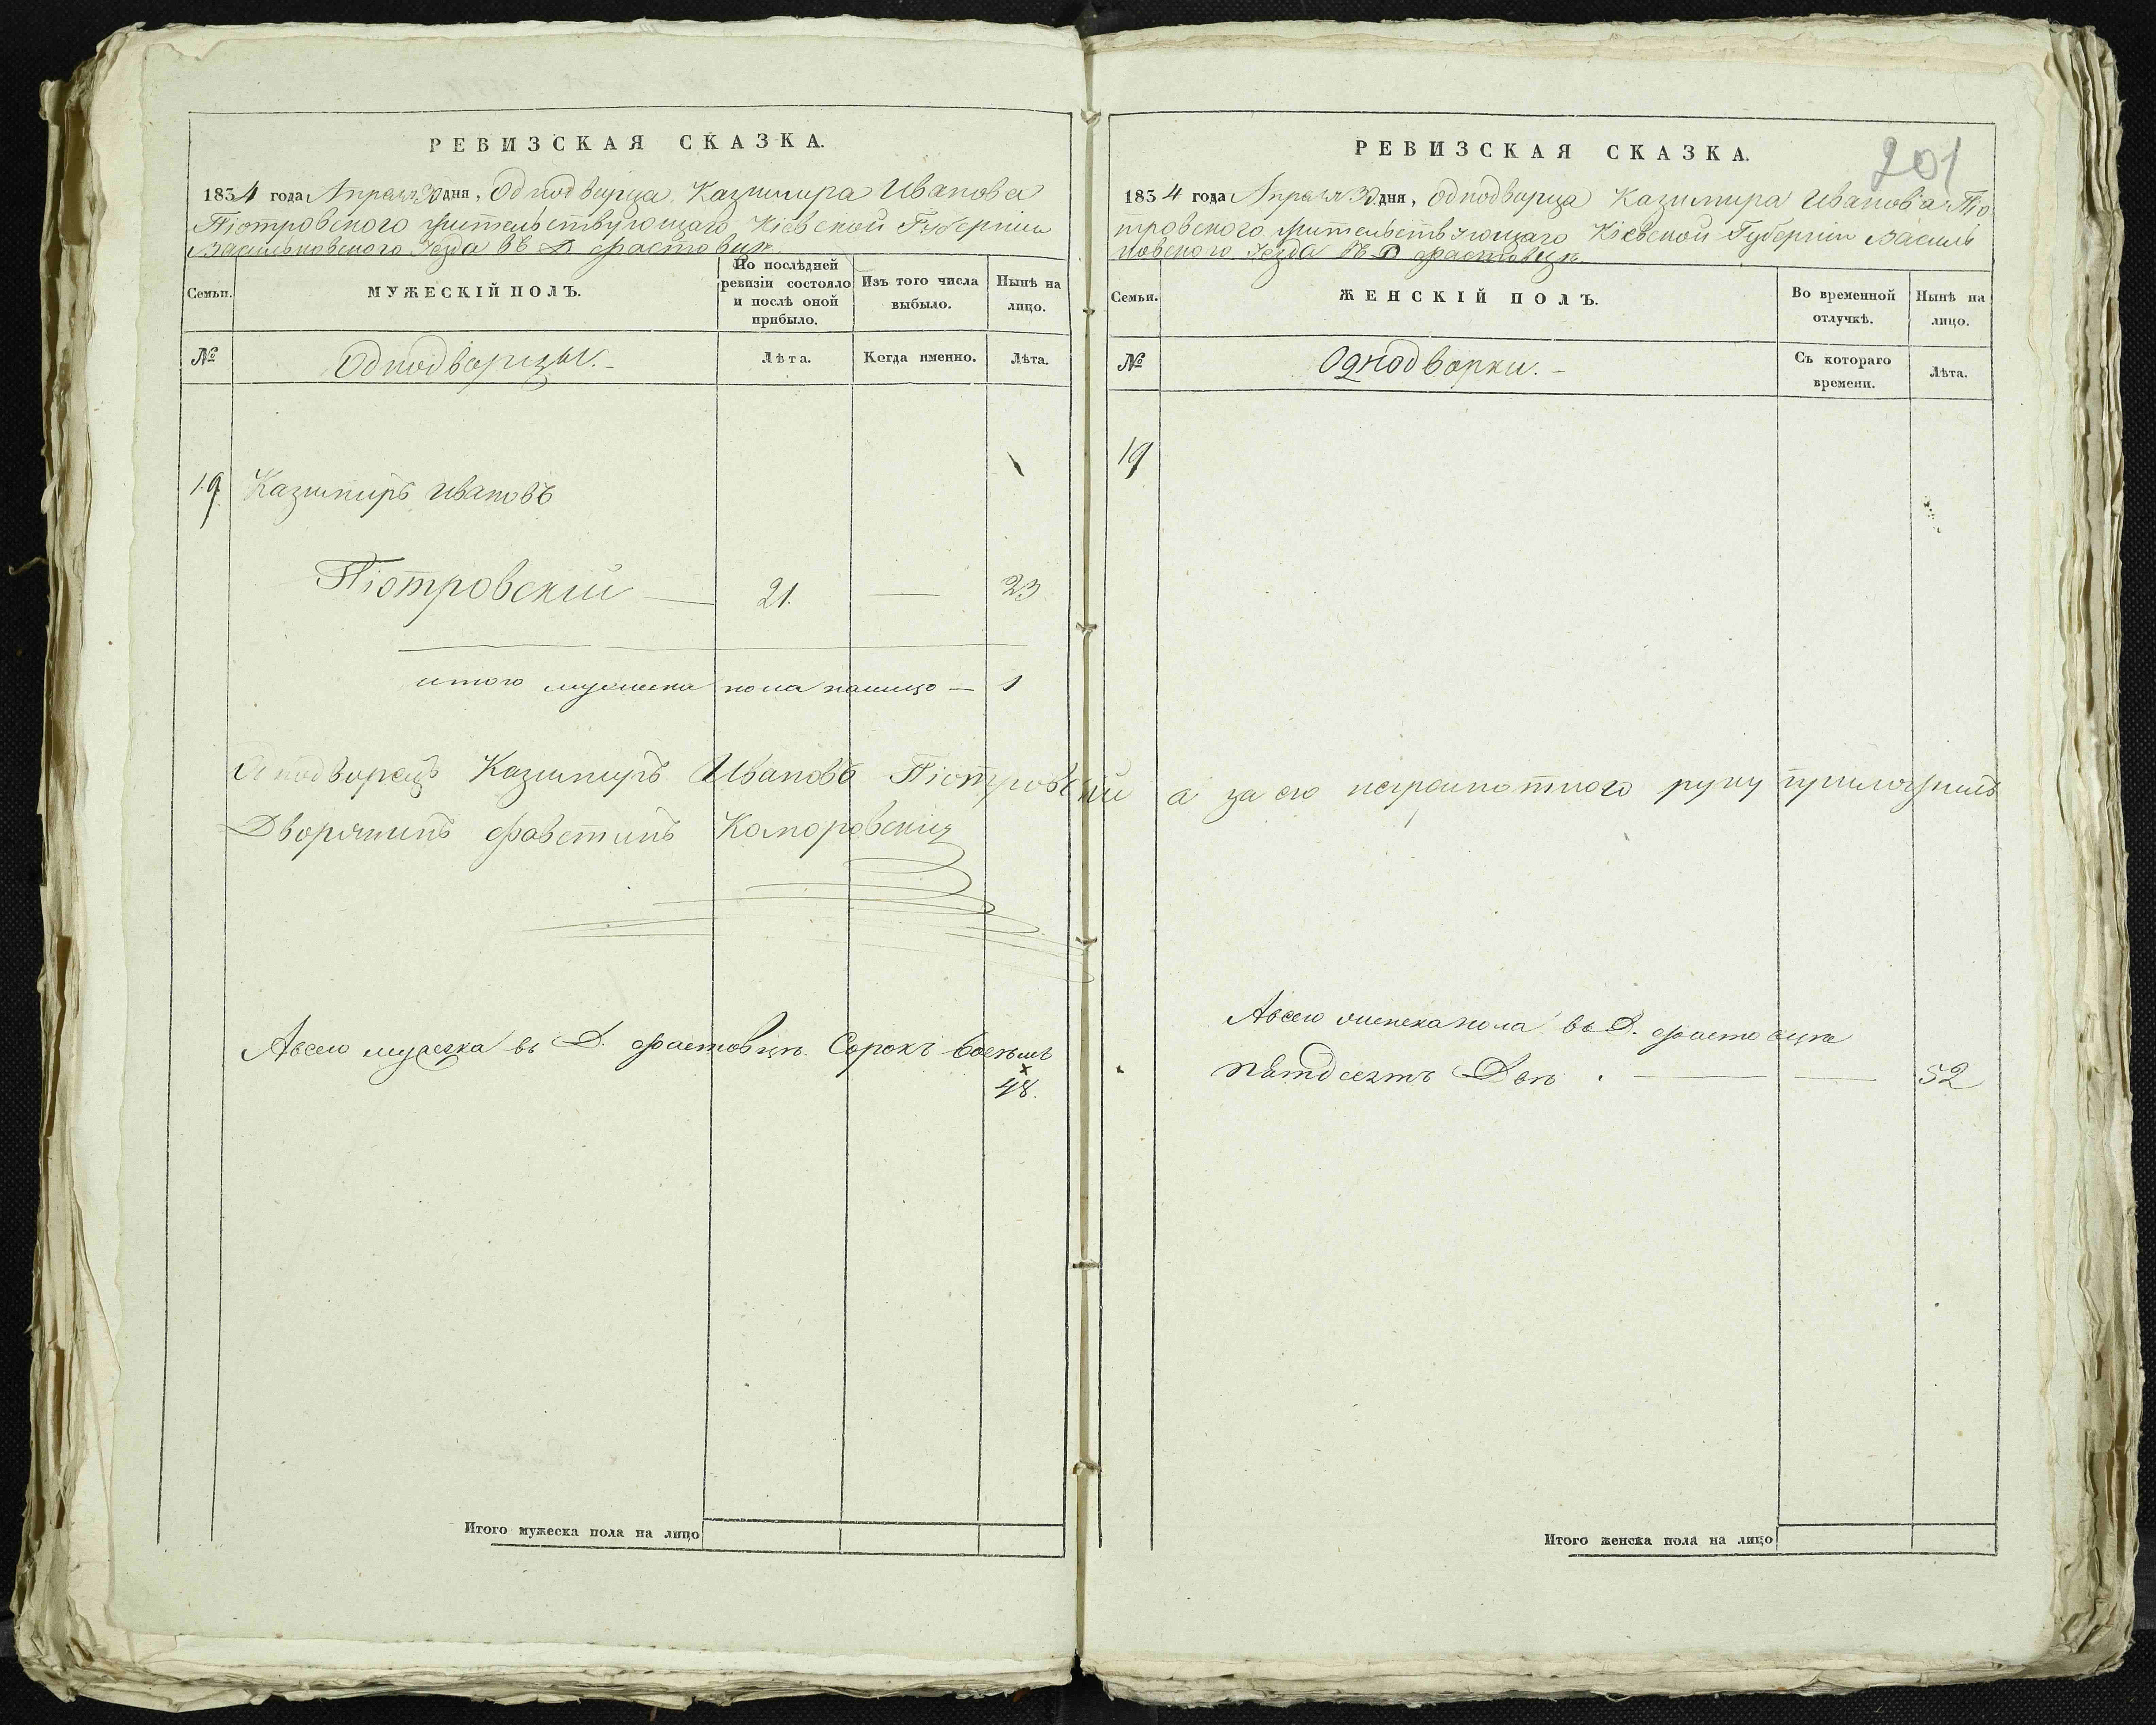 РЕВИЗСКАЯ СКАЗКА.
1834 года Апреля 30 дня, Однодворца Казимира Иванова
Піотровского жительствующаго Кіевской Губерніи
Васильковского Уезда въ Д Фастовце
Семьи.
МУЖЕСКІЙ ПОЛЪ.
По послѣдней ревизіи состояло и послѣ оной прибыло.
Изъ того числа выбыло.
Нынѣ на лицо.
№
Однодворцы.
Лѣта.
Когда именно.
Лѣта.
19 Казимиръ Ивановъ
Піотровскій — 21. — 23
итого мужеска пола налицо — 1
Однодворецъ Казимиръ Ивановъ Піотровскій а за его неграмотного руку приложилъ
Дворянинъ Фавстинъ Коморовский
Авсего мужеска въ Д. Фастовце. Сорокъ восемь
48.
Итого мужеска пола на лицо
201
РЕВИЗСКАЯ СКАЗКА.
1834 года Апреля 30 дня, Однодворца Казимира Иванова Піо
тровского жительствующаго Кіевской Губерніи Василь
ковского Уезда въ Д Фастовце
Семьи.
ЖЕНСКІЙ ПОЛЪ.
Во временной отлучкѣ.
Нынѣ на лицо.
№
Однодворки.
Съ котораго времени.
Лѣта.
19
Авсего женска пола въ Д. Фастовце
пятдесятъ Две . — — 52
Итого женска пола на лицо